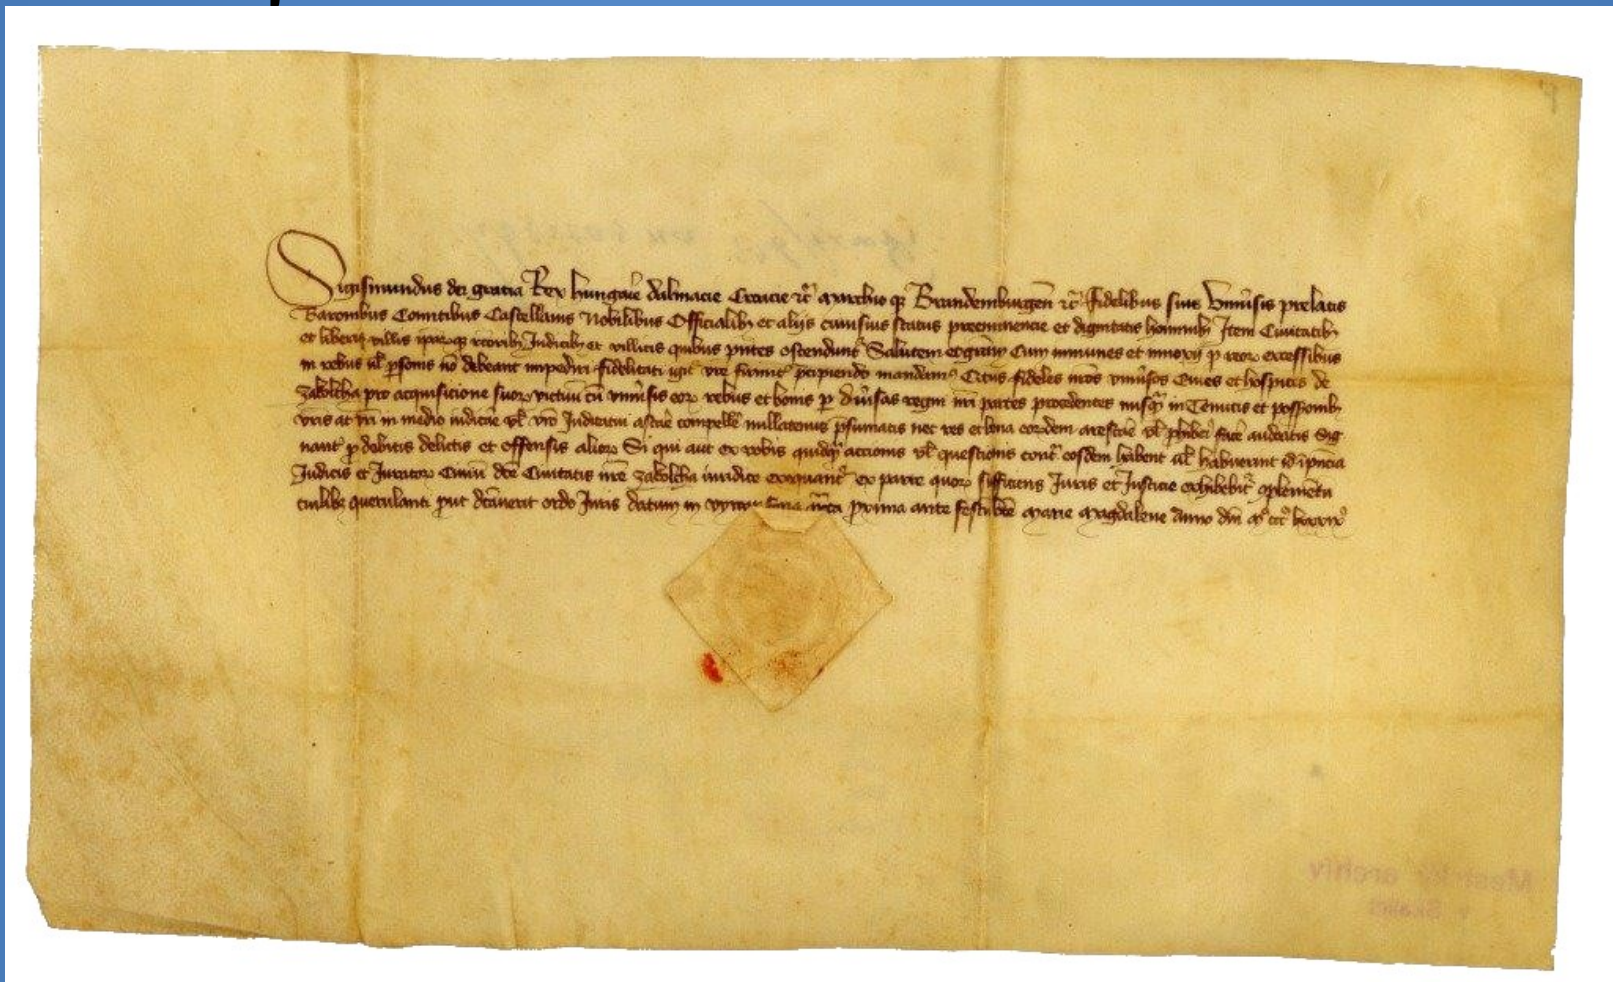 Sigismundus dei gratia Rex hungarie dalmacie Croacie rc̄ Marchio qꝫ Brandemburgen̄ rc̄ fidelibus suis Vniūsis prelatis
Baronibus Comitibus Castellanis Nobilibus Officialibꝫ et alijs cuiusuis status preeminencie et dignitatis hominibꝫ Item Ciuitatibꝫ
et liberis villis ipaꝝqꝫ rectoribꝫ Iudicibꝫ et villicis quibus pn̄tes ostendunt᷑ Salutem et grām Cum immunes et innoxij p reoꝝ excessibus
in rebus ul̄ psonis nō debeant impediri fidelitati vre firmit᷑ pcipiendo mandamꝰ fideles nr̄os vniūsos Ciues et hospites de
Zakolcha pro acquisicione suoꝝ victuū cū vniūsis eoꝝ rebus et bonis per diūsas regni nr̄i partes procedentes nusqꝫ in Tenutis et possionibꝫ
vr̄is at vr̄i in medio iudicare vl̄ vr̄o Iudicatui astare compellē nullatenus psumatis nec res et bona eoꝝdem arestare vl̄ phiberi facē audeatis Sig
nant᷑ p debitis delictis et offensis alioꝝ Si qui aut ex vobis quidqꝫ accionis vl̄ questionis cont᷑ eosdem habent ul̄ habuerint id in pn̄cia
Iudicis et Iuratoꝝ Ciuiū dc̄e Ciuitatis nr̄e Zakolcha iuridice exequant᷑ ex parte quoꝝ sufficiens Iuris et Iusticie exhibebit᷑ 9plementū
cuilibꝫ querulanti put dictauerit ordo Iuris datum in feria proxima ante festū bt̄e Marie Magdalene Anno dn̄i Mo ccco lxxxix
Mestský archív
v Skalici